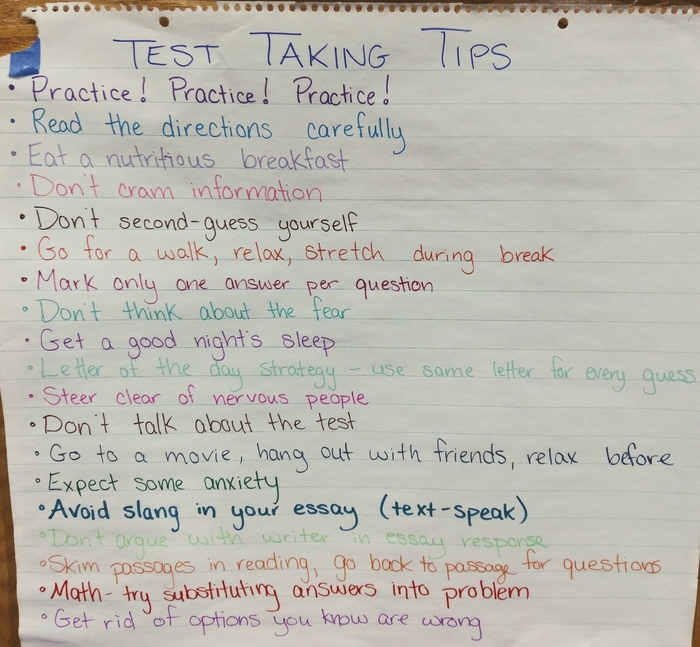 TEST TAKING TIPS
• Practice! Practice! Practice!
• Read the directions carefully
• Eat a nutritious breakfast
• Don't cram information
• Don't second-guess yourself
• Go for a walk, relax, stretch during break
• Mark only one answer per question
• Don't think about the fear
• Get a good night's sleep
• Letter of the day strategy - use same letter for every guess
• Steer clear of nervous people
• Don't talk about the test
• Go to a movie, hang out with friends, relax before
• Expect some anxiety
• Avoid slang in your essay (text-speak)
• Don't argue with writer in essay response
• Skim passages in reading, go back to passage for questions
• Math- try substituting answers into problem
• Get rid of options you know are wrong